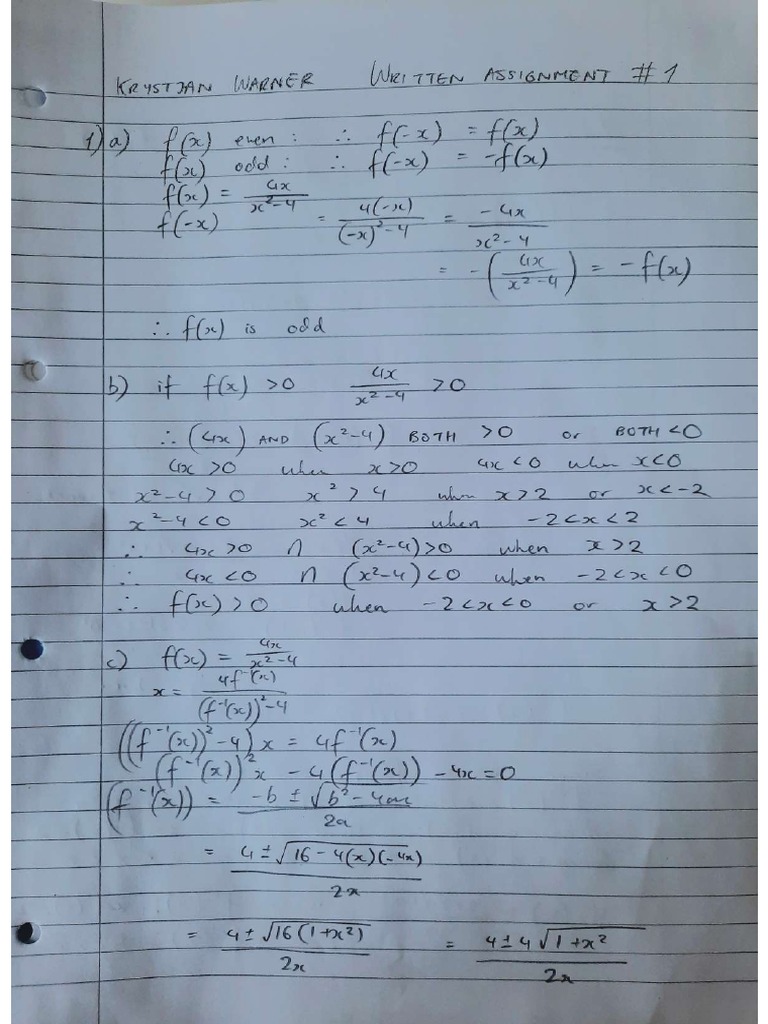 KRYSTJAN WARNER WRITTEN ASSIGNMENT #1
1) a) f(x) even: ∴ f(-x) = f(x)
f(x) odd: ∴ f(-x) = -f(x)
f(x) = 4x / x²-4
f(-x) = 4(-x) / (-x)²-4 = -4x / x²-4
= -(4x / x²-4) = -f(x)
∴ f(x) is odd
b) if f(x) >0 4x / x²-4 >0
∴ (4x) AND (x²-4) BOTH >0 or BOTH <0
4x >0 when x>0 4x<0 when x<0
x²-4>0 x²>4 when x>2 or x<-2
x²-4<0 x²<4 when -2<x<2
∴ 4x>0 ∩ (x²-4)>0 when x>2
∴ 4x<0 ∩ (x²-4)<0 when -2<x<0
∴ f(x)>0 when -2<x<0 or x>2
c) f(x) = 4x / x²-4
x = 4f⁻¹(x) / (f⁻¹(x))²-4
((f⁻¹(x))²-4)x = 4f⁻¹(x)
(f⁻¹(x))²x - 4(f⁻¹(x)) -4x=0
(f⁻¹(x)) = -b ± √b²-4ac / 2a
= 4±√16-4(x)(-4x) / 2x
= 4±√16(1+x²) / 2x = 4±4√1+x² / 2x